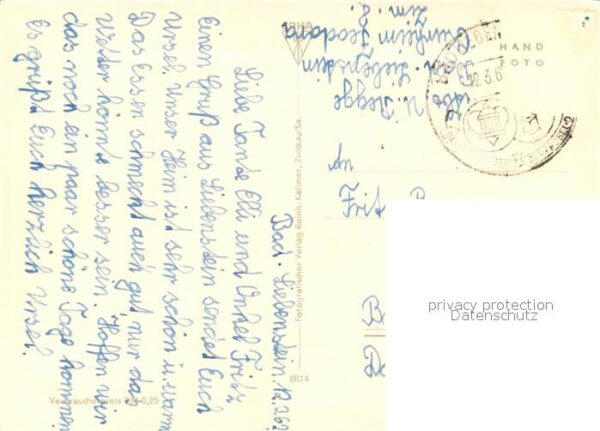 Bad-Liebenstein, 12.3.62
Liebe Tante Elli und Onkel Fritz
Einen Gruß aus Liebenstein sendet Euch
Ursel. Unser Heim ist sehr schön u. warm
Das Essen schmeckt auch gut nur das
Wetter könnte besser sein. Hoffen wir
das noch ein paar schöne Tage kommen.
Es grüßt Euch herzlich Ursel.
Verbraucherpreis DM 0,25
8814
Fotografischer Verlag Reinh. Kallmer, Zwickau/Sa.
HAND
FOTO
12.3.6
Liebenstein
Kurheim Feodora
Zim. 2.
privacy protection
Datenschutz